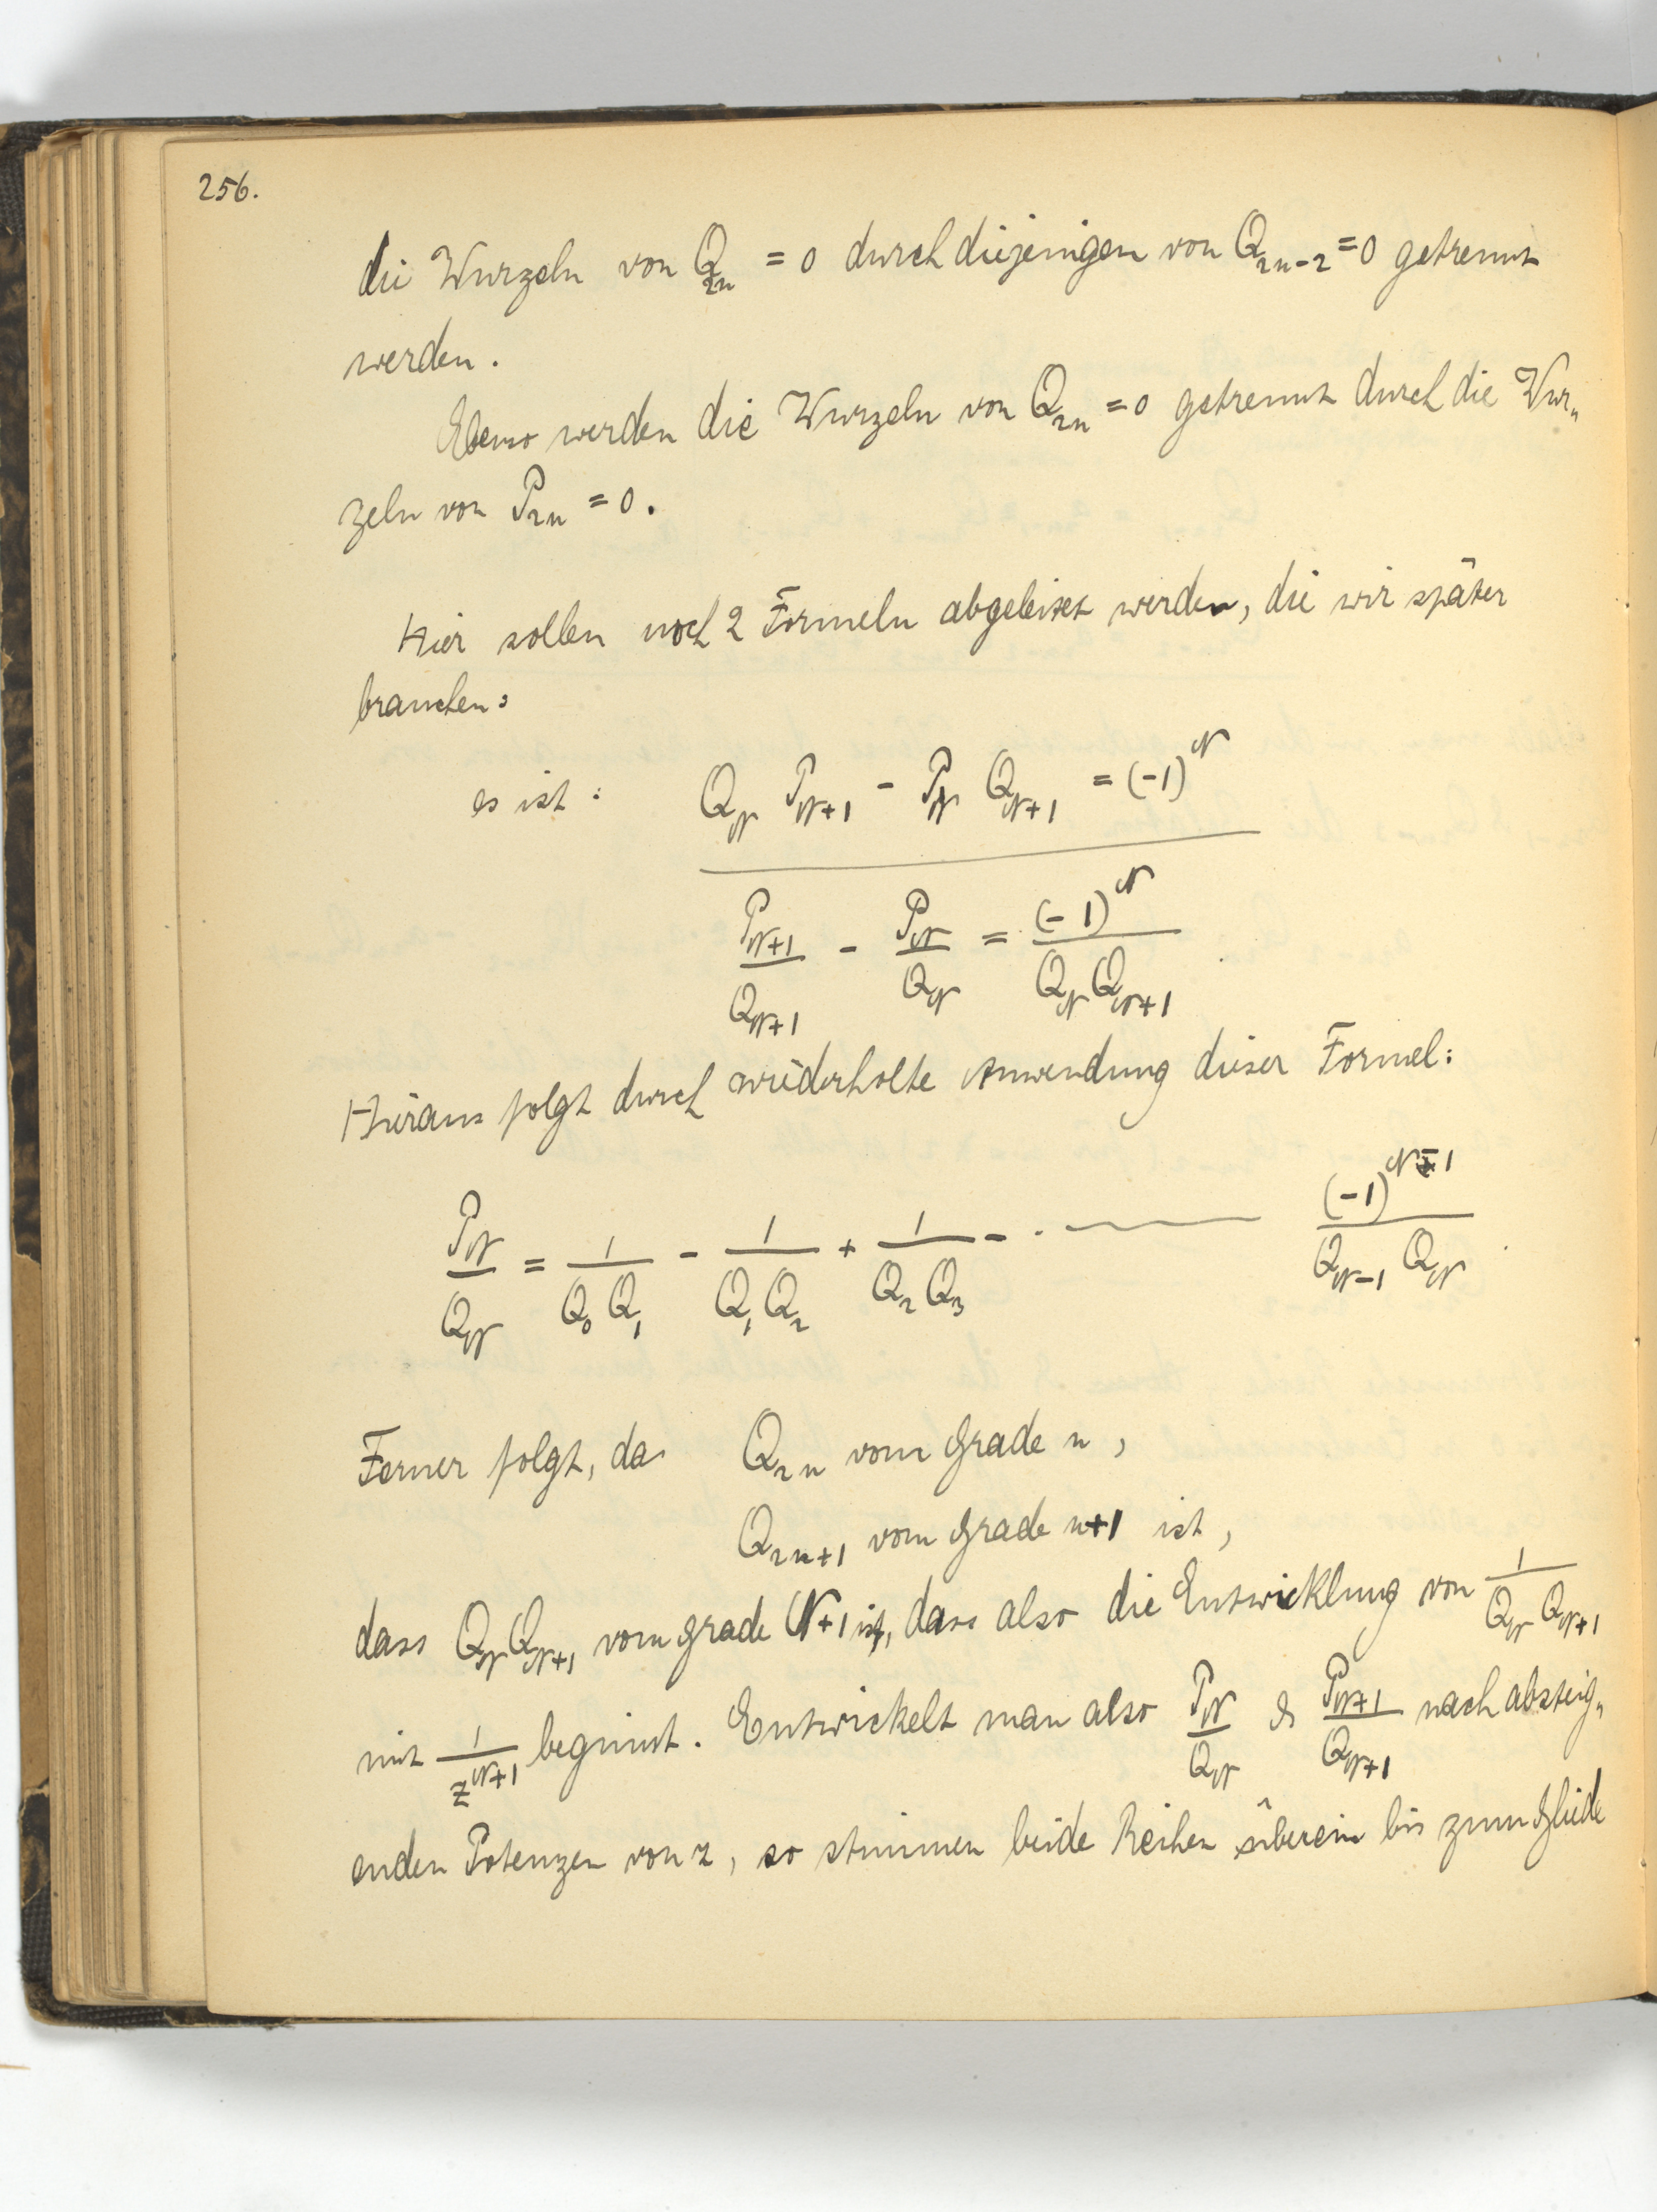 256.
die Wurzeln von Q_{2n} = 0 durch diejenigen von Q_{2n-2} = 0 getrennt
werden.
Ebenso werden die Wurzeln von Q_{2n} = 0 getrennt durch die Wur„
zeln von P_{2n} = 0.
Hier sollen noch 2 Formeln abgeleitet werden, die wir später
brauchen:
es ist: Q_N P_{N+1} - P_N Q_{N+1} = (-1)^N
P_{N+1}/Q_{N+1} - P_N/Q_N = (-1)^N/(Q_N Q_{N+1})
Hieraus folgt durch wiederholte Anwendung dieser Formel:
P_N/Q_N = 1/(Q_0 Q_1) - 1/(Q_1 Q_2) + 1/(Q_2 Q_3) - · ——— (-1)^{N-1}/(Q_{N-1} Q_N).
Ferner folgt, da Q_{2n} vom Grade n,
Q_{2n+1} vom Grade n+1 ist,
dass Q_N Q_{N+1} vom Grade N+1 ist, dass also die Entwicklung von 1/(Q_N Q_{N+1})
mit 1/z^{N+1} beginnt. Entwickelt man also P_N/Q_N & P_{N+1}/Q_{N+1} nach absteig„
enden Potenzen von z, so stimmen beide Reihen überein bis zum Gliede